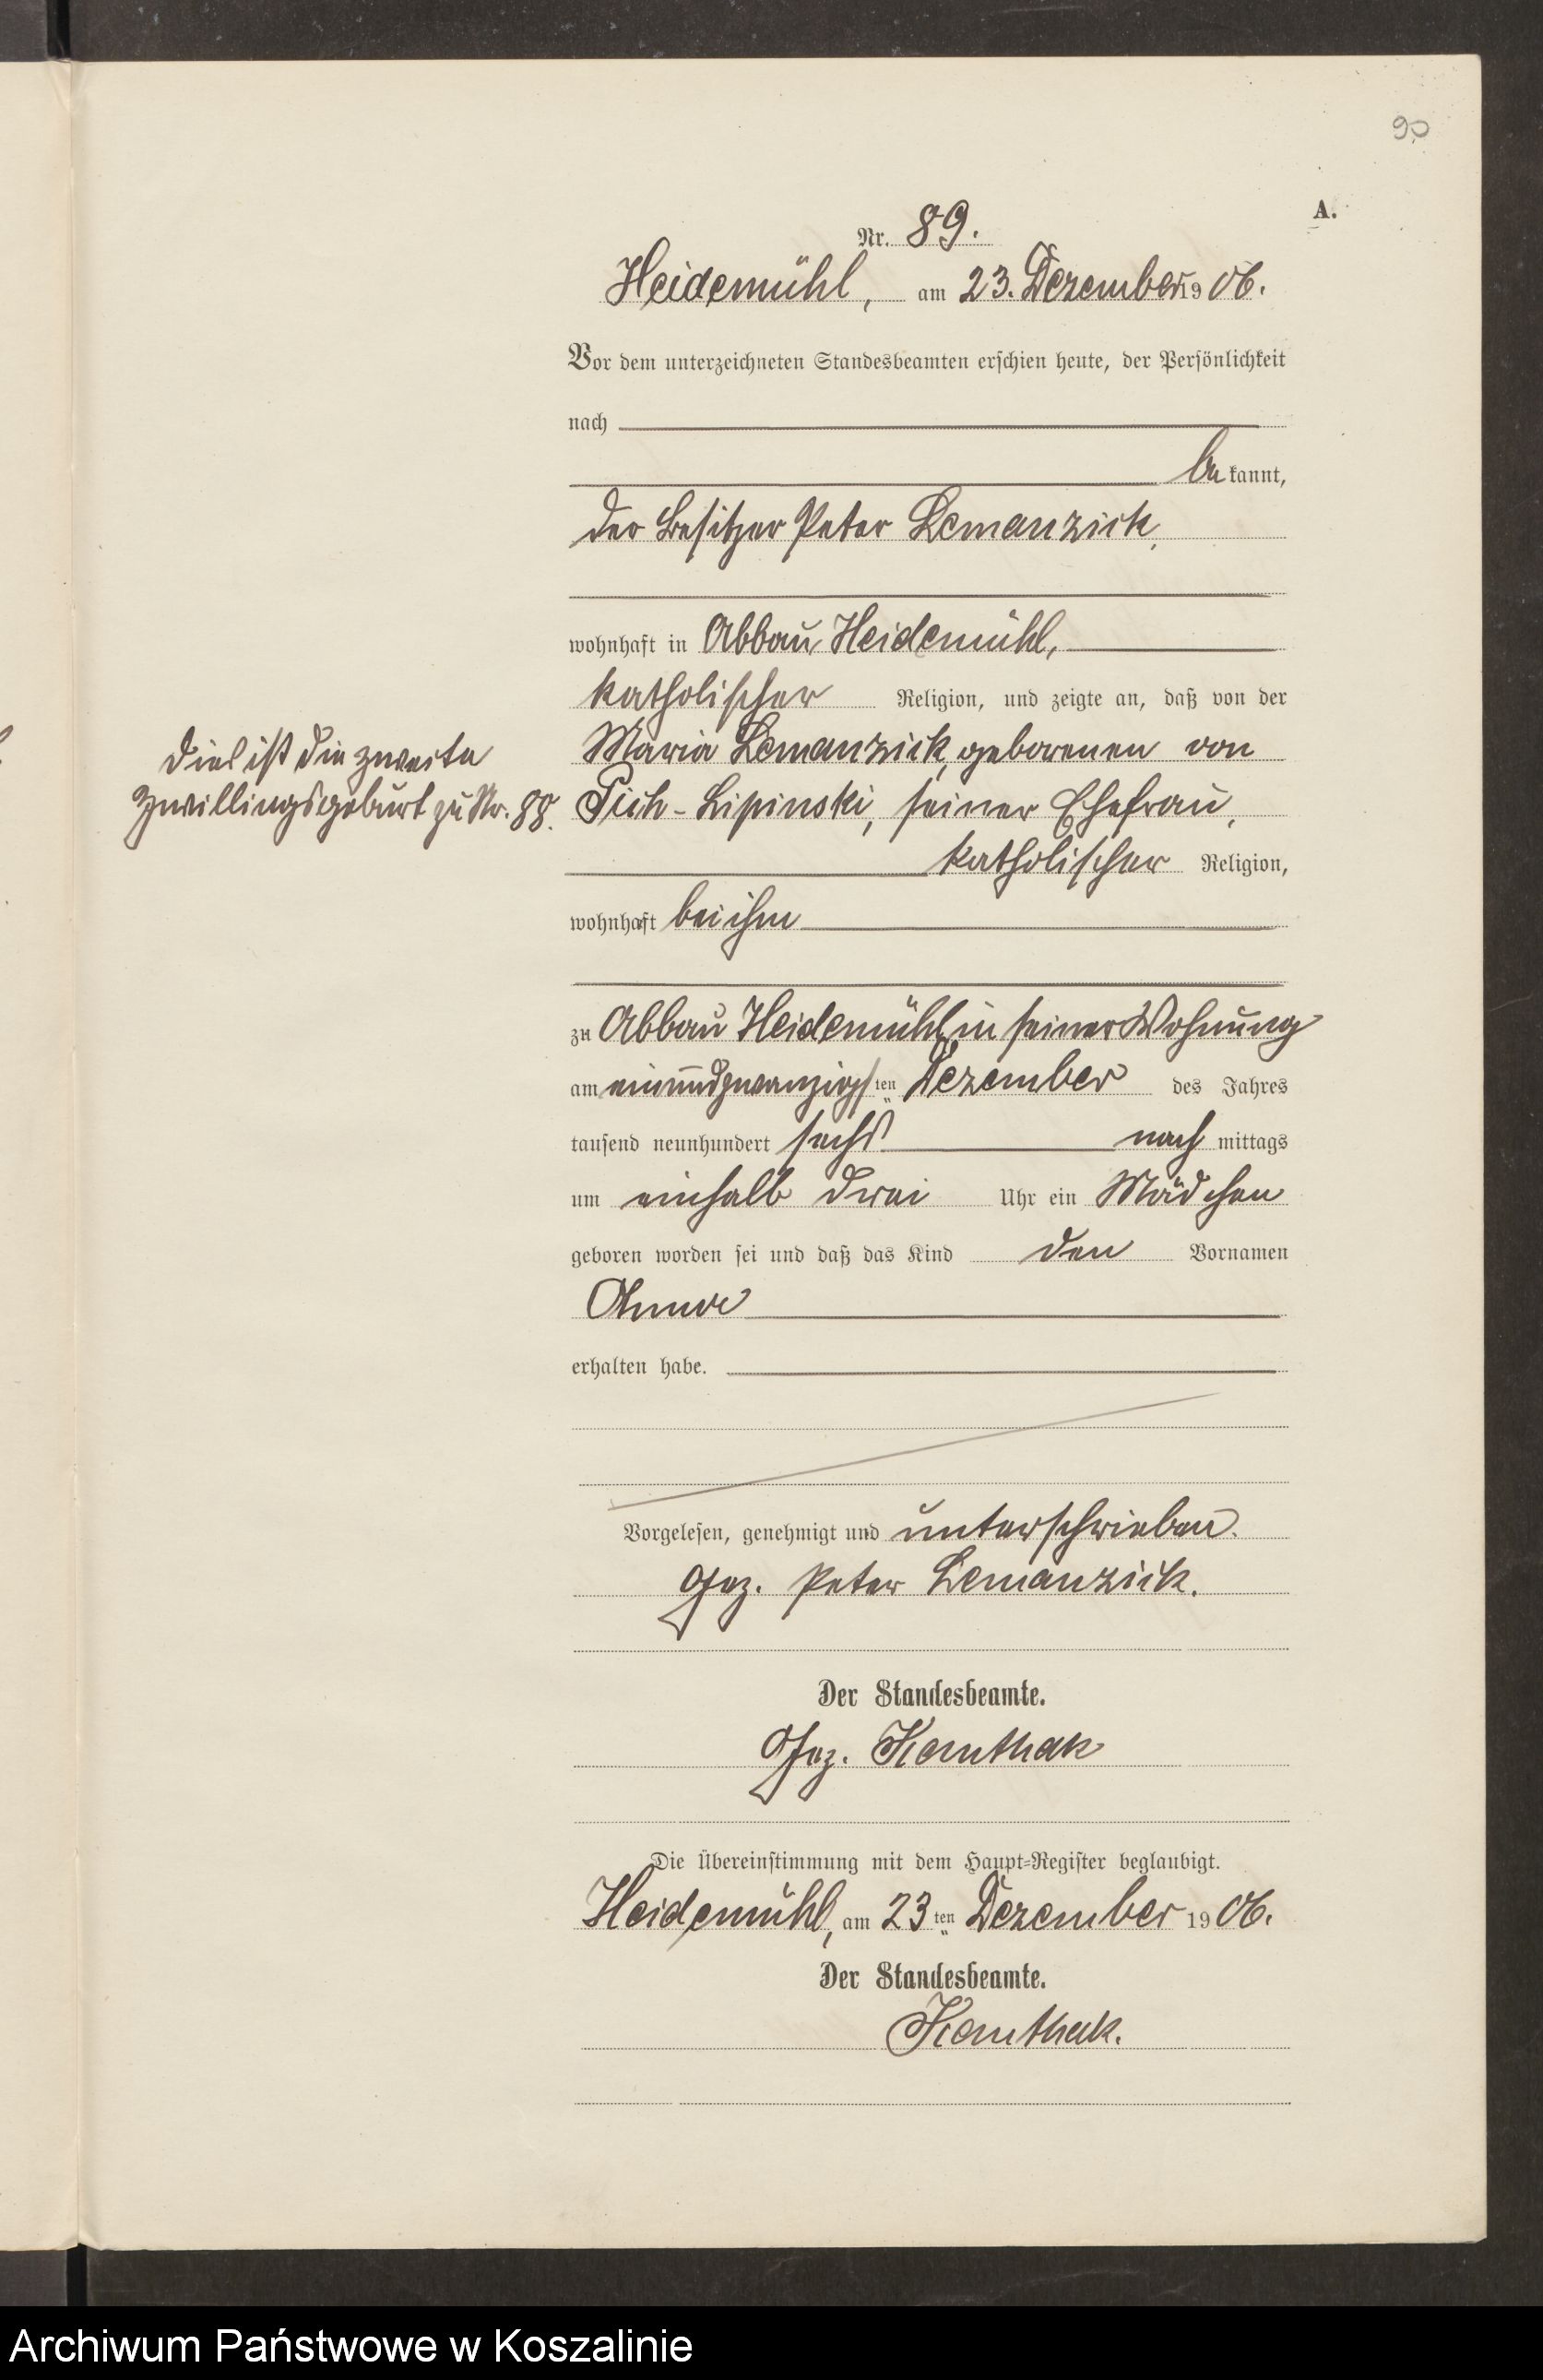 90
A.
Nr. 89.
Heidemühl, am 23. Dezember 1906.
Vor dem unterzeichneten Standesbeamten erschien heute, der Persönlichkeit
nach
be kannt,
der Besitzer Peter Lemanzick,
wohnhaft in Abbau Heidemühl,
katholischer Religion, und zeigte an, daß von der
Maria Lemanzick, geborenen von
Dies ist die zweite
Zwillingsgeburt zu Nr. 88.
Pich-Lipinski, seiner Ehefrau,
katholischer Religion,
wohnhaft bei ihm
zu Abbau Heidemühl, in seiner Wohnung
am einundzwanzigsten Dezember des Jahres
tausend neunhundert sechs nach mittags
um einhalb drei Uhr ein Mädchen
geboren worden sei und daß das Kind den Vornamen
erhalten habe.
Vorgelesen, genehmigt und unterschrieben.
Gez. Peter Lemanzick.
Der Standesbeamte.
Gez. Kanthak
Die Übereinstimmung mit dem Haupt-Register beglaubigt.
Heidemühl, am 23ten Dezember 1906.
Der Standesbeamte.
Kanthak.
Archiwum Państwowe w Koszalinie